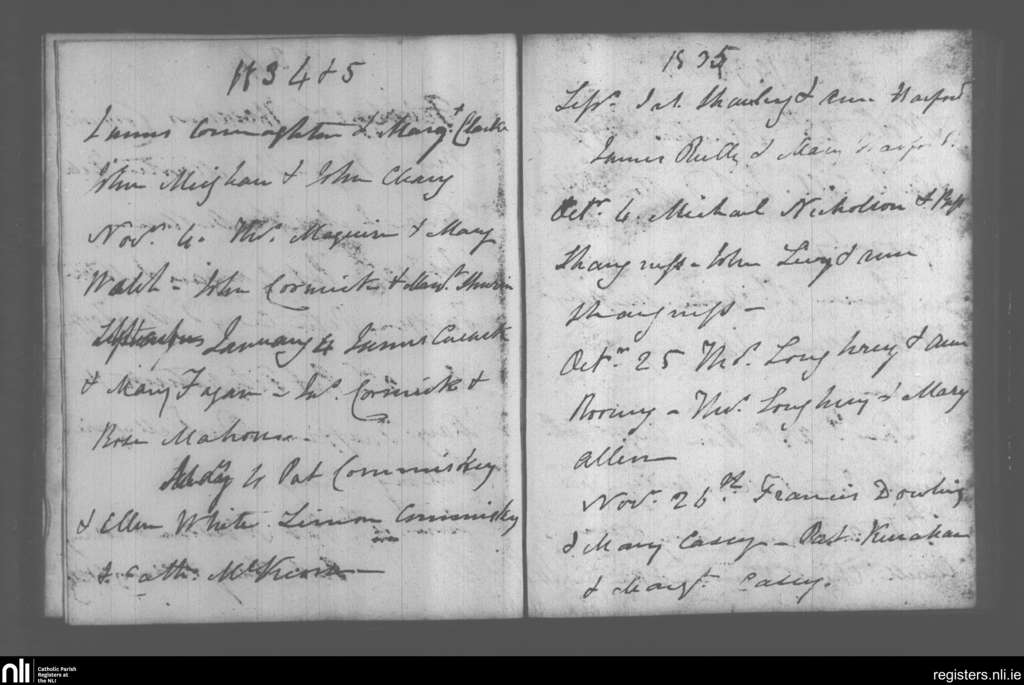 1834 & 5
James Connaghton & Margt Clarke
John Meighan & John Cleary
Novr. 4. Thos. Maguire & Mary
Walsh - John Cormick & Margt
January 4 James Cusack
& Mary Fagan - Jas. Cormick &
Rose Mahon -
6 Pat Commiskey
& Ellen White. Simon Commisky
& Cath. McKeon
1835
Sepr. Pat. & Ann Harford
James Reilly & Mary Harford.
Octr. 4. Michael Nicholson & Bess
- John Levy & Ann
-
Octr. 25 Thos. Loughrey & Ann
Rooney - Thos. Loughrey & Mary
Allen
Novr. 26th. Francis Dowling
& Mary Casey - Pat. Kinahan
& Margt. Casey.
nli
Catholic Parish
Registers at
the NLI
registers.nli.ie